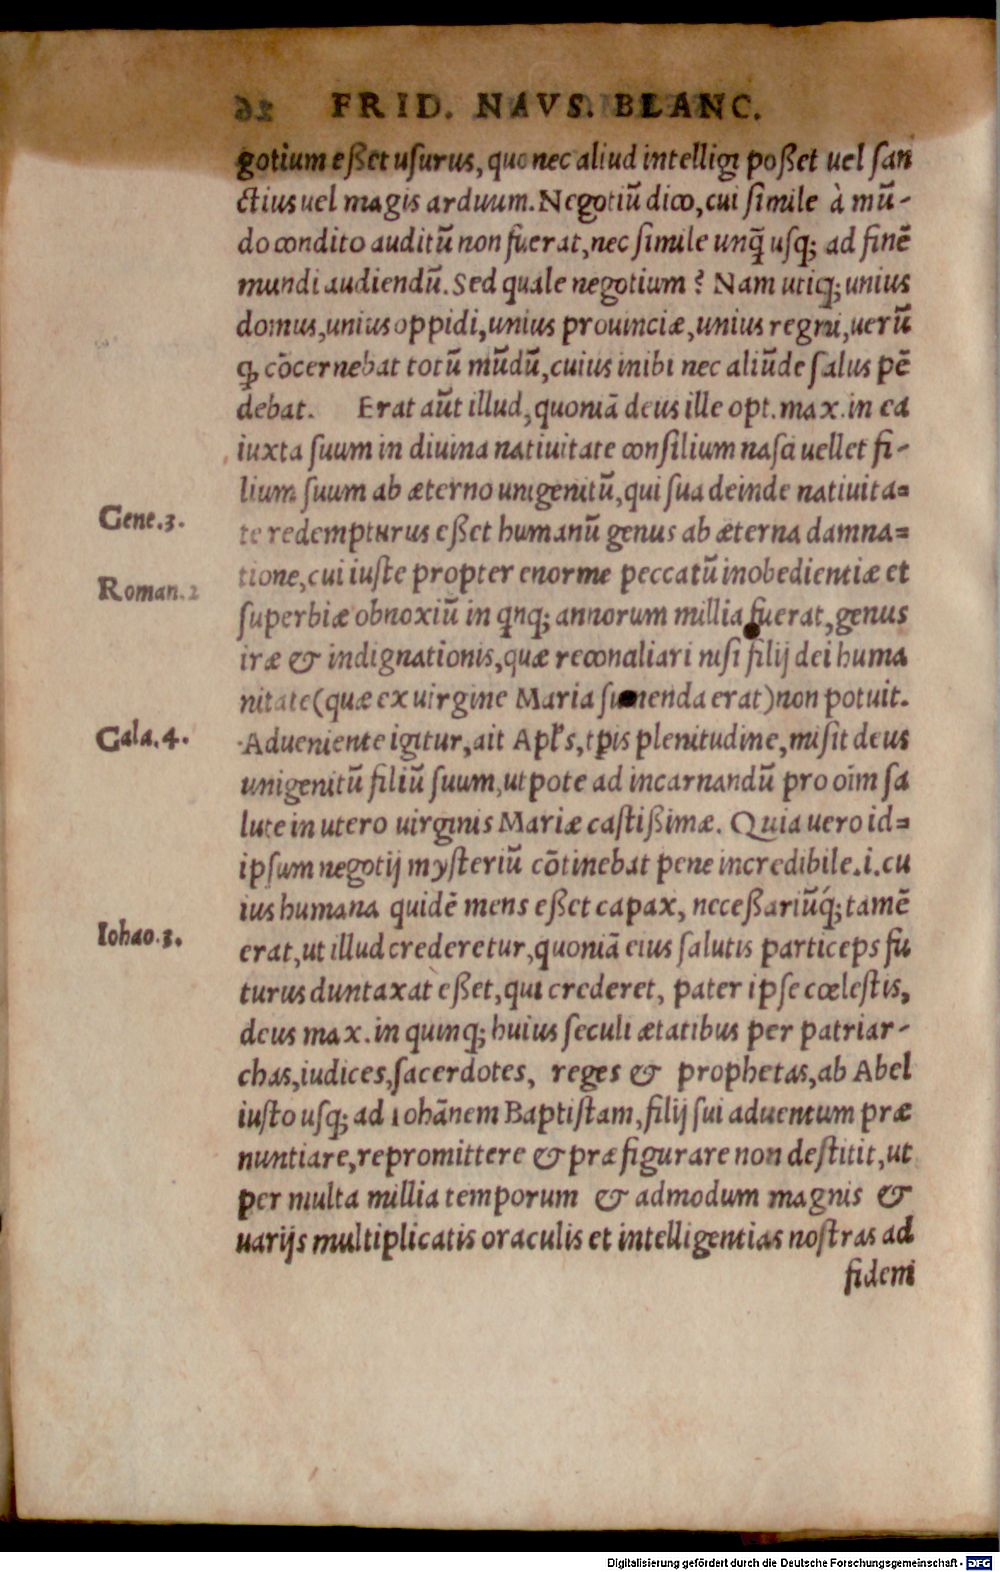 FRID. NAVS. BLANC.
gotium eßet usurus, quo nec aliud intelligi poßet uel san
ctius uel magis arduum. Negotiũ dico, cui simile à mũ-
do condito auditũ non fuerat, nec simile unq̃ usq; ad finẽ
mundi audiendũ. Sed quale negotium? Nam utiq; unius
domus, unius oppidi, unius prouinciæ, unius regni, uerũ
q̃ cõcernebat totũ mũdũ, cuius inibi nec aliũde salus pẽ
debat. Erat aũt illud, quoniã deus ille opt. max. in ea
iuxta suum in diuina natiuitate consilium nasci uellet fi-
lium suum ab æterno unigenitũ, qui sua deinde natiuita=
Gene.3.
te redempturus eßet humanũ genus ab æterna damna=
tione, cui iuste propter enorme peccatũ inobedientiæ et
Roman.2
superbiæ obnoxiũ in qnq; annorum millia fuerat, genus
iræ & indignationis, quæ reconciliari nisi filij dei huma
nitate (quæ ex uirgine Maria sumenda erat) non potuit.
Gala.4.
Adueniente igitur, ait Apl's, tpis plenitudine, misit deus
unigenitũ filiũ suum, utpote ad incarnandũ pro oĩm sa
lute in utero uirginis Mariæ castißimæ. Quia uero id=
ipsum negotij mysteriũ cõtinebat pene incredibile .i. cu
ius humana quidẽ mens eßet capax, neceßariũq́; tamẽ
Iohao.3.
erat, ut illud crederetur, quoniã eius salutis particeps fu
turus duntaxat eßet, qui crederet, pater ipse cœlestis,
deus max. in quinq; huius seculi ætatibus per patriar-
chas, iudices, sacerdotes, reges & prophetas, ab Abel
iusto usq; ad Iohãnem Baptistam, filij sui aduentum præ
nuntiare, repromittere & præfigurare non destitit, ut
per multa millia temporum & admodum magnis &
uarijs multiplicatis oraculis et intelligentias nostras ad
fidem
Digitalisierung gefördert durch die Deutsche Forschungsgemeinschaft - DFG